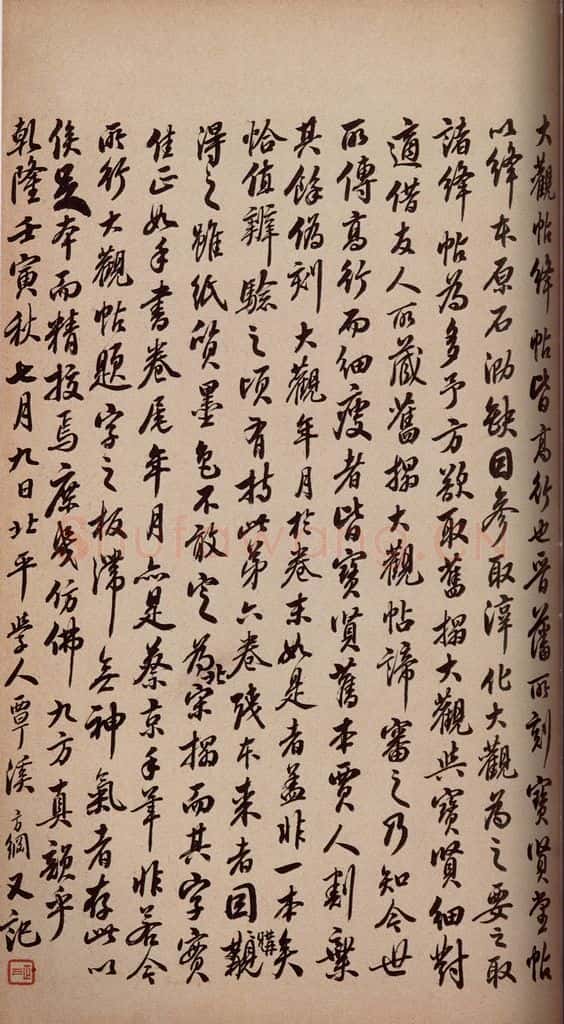 大觀帖絳帖皆高行也晉藩所刻寶賢堂帖
以絳本原石泐缺因參取淳化大觀為之要之取
諸絳帖為多予方欲取舊搨大觀與寶賢細對
適借友人所藏舊搨大觀帖諦審之乃知今世
所傳高行而細瘦者皆寶賢舊本賈人割棄
其餘偽刻大觀年月於卷末如是者蓋非一本矣
恰值辨驗之頃有持此第六卷殘本來者因觀購
得之雖紙質墨色不敢定為北宋搨而其字實
佳正如手書卷尾年月亦是蔡京手筆非若今
所行大觀帖題字之板滯無神氣者存此以
俟足本而精挍焉庶幾仿佛九方真韻乎
乾隆壬寅秋七月九日北平學人覃溪方綱又記